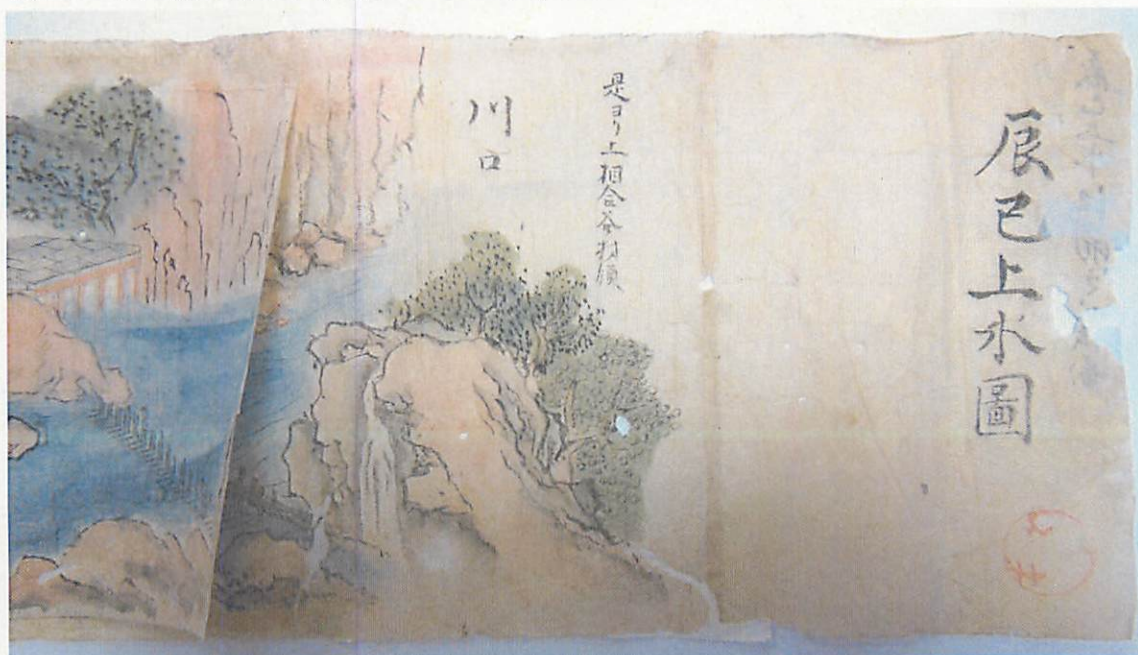 辰巳上水圖
是ヨリ上相合谷村領
川口